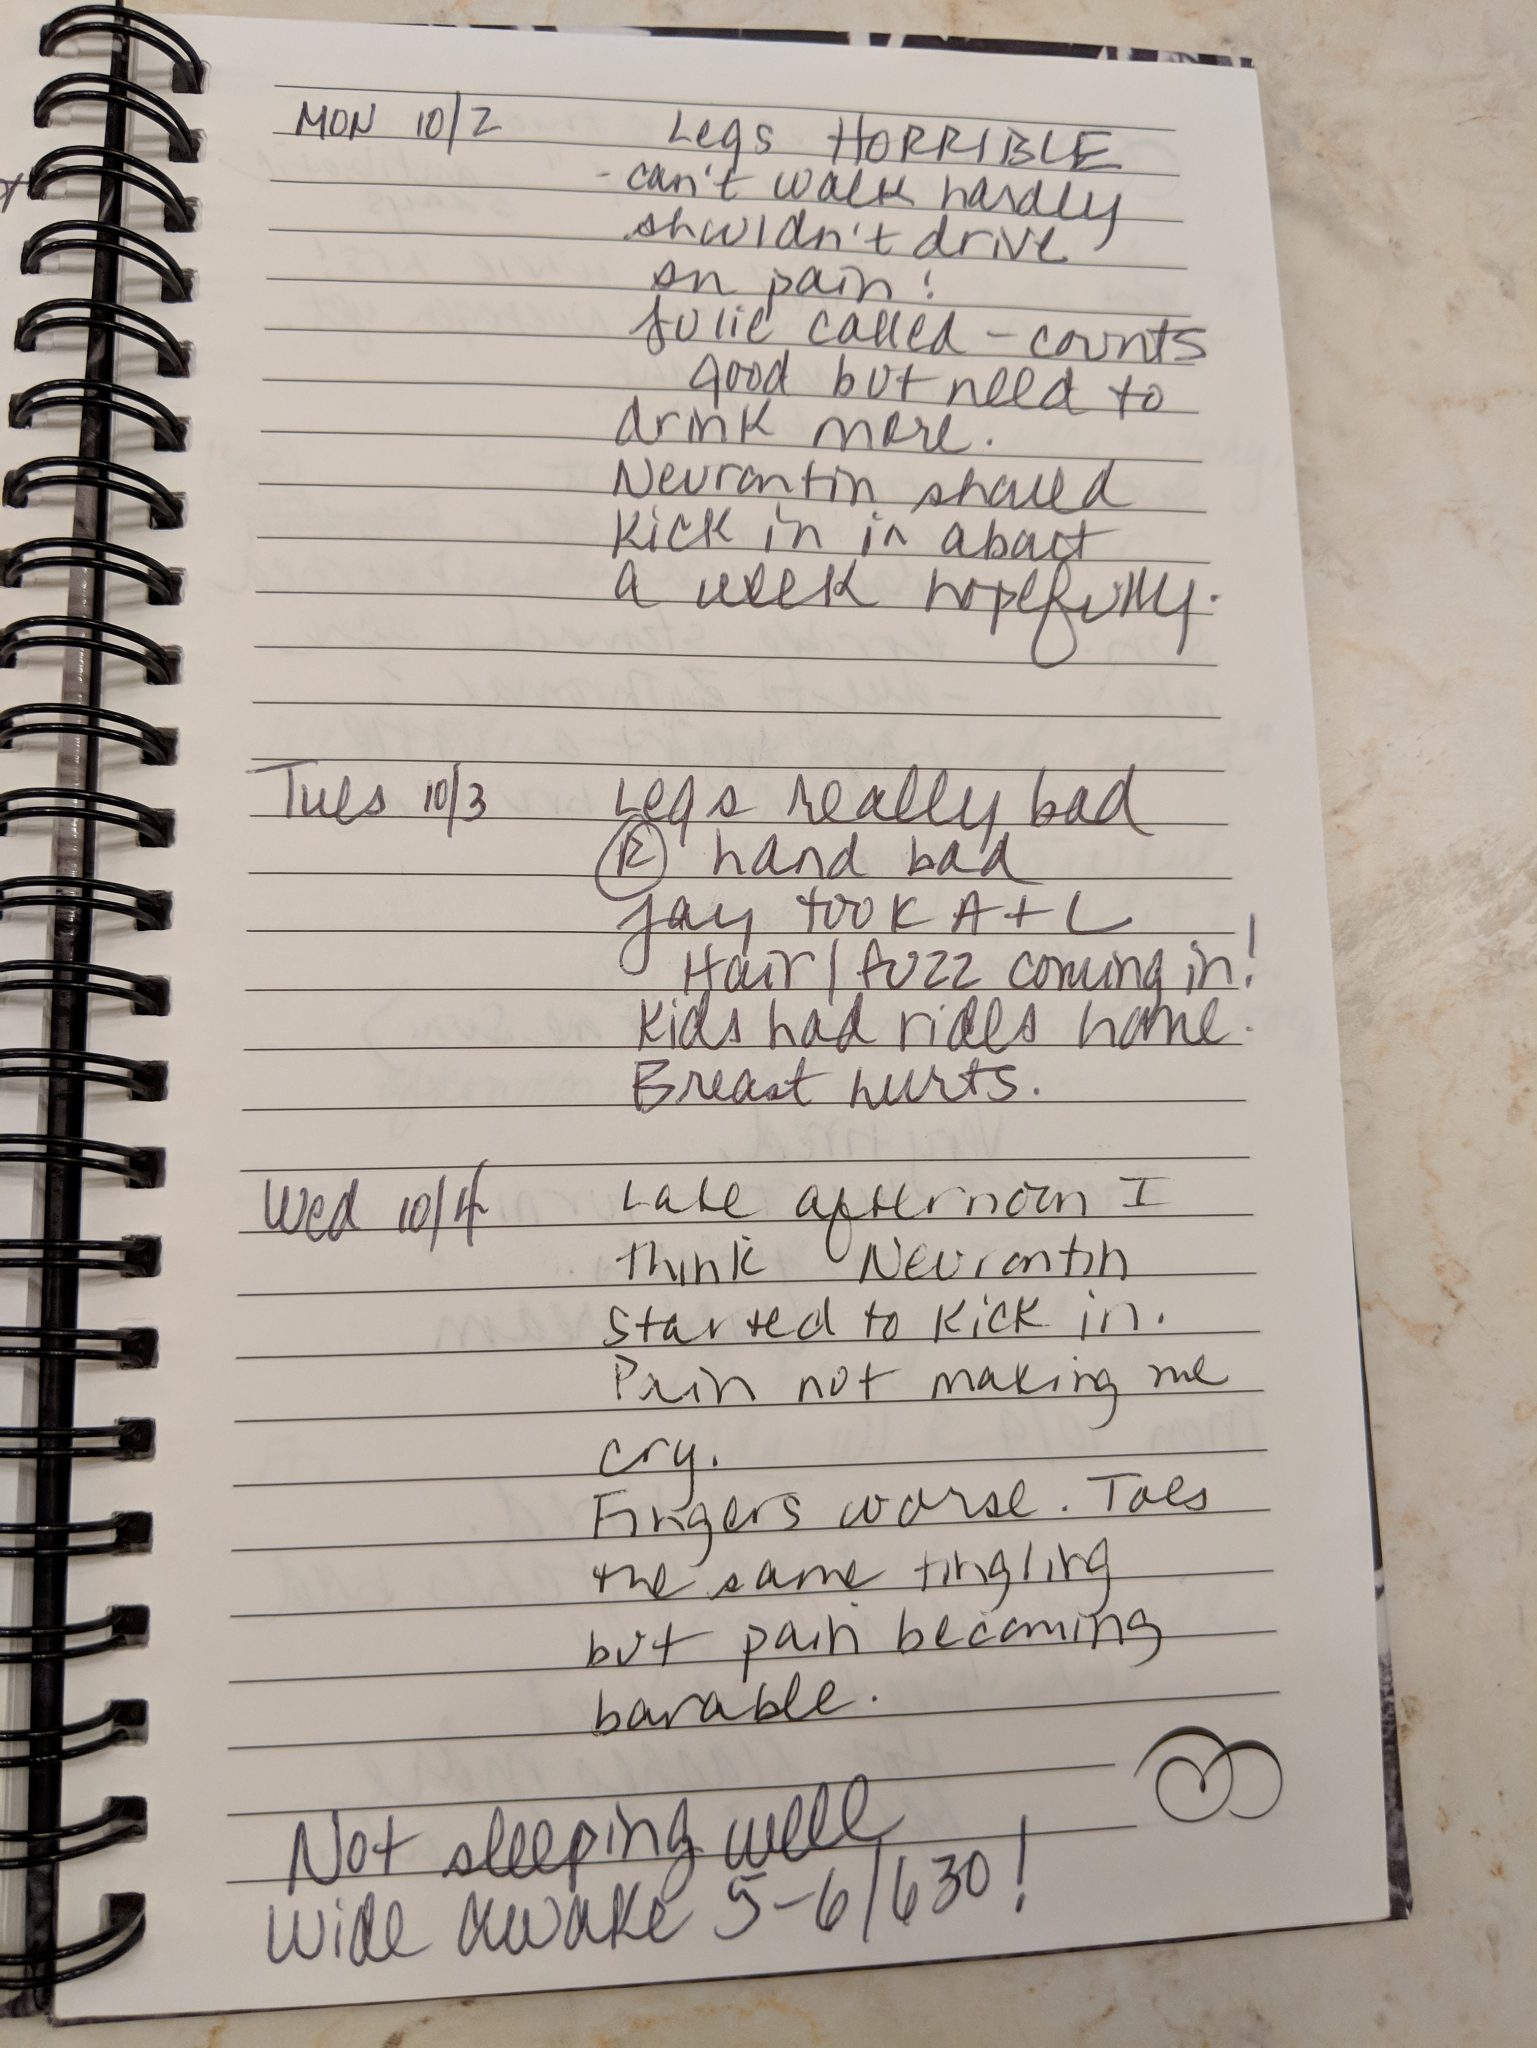 MON 10/2 Legs HORRIBLE
- can't walk hardly
shwldn't drive
on pain!
Julie called - counts
good but need to
drink more.
Neurontin should
kick in in about
a week hopefully.
Tues 10/3 Legs really bad
R hand bad
Jay took A + L
Hair/fuzz coming in!
Kids had rides home.
Breast hurts.
Wed 10/4 Late afternoon I
think Neurontin
started to kick in.
Pain not making me
cry.
Fingers worse. Toes
the same tingling
but pain becoming
barable.
Not sleeping well
wide awake 5-6/630!